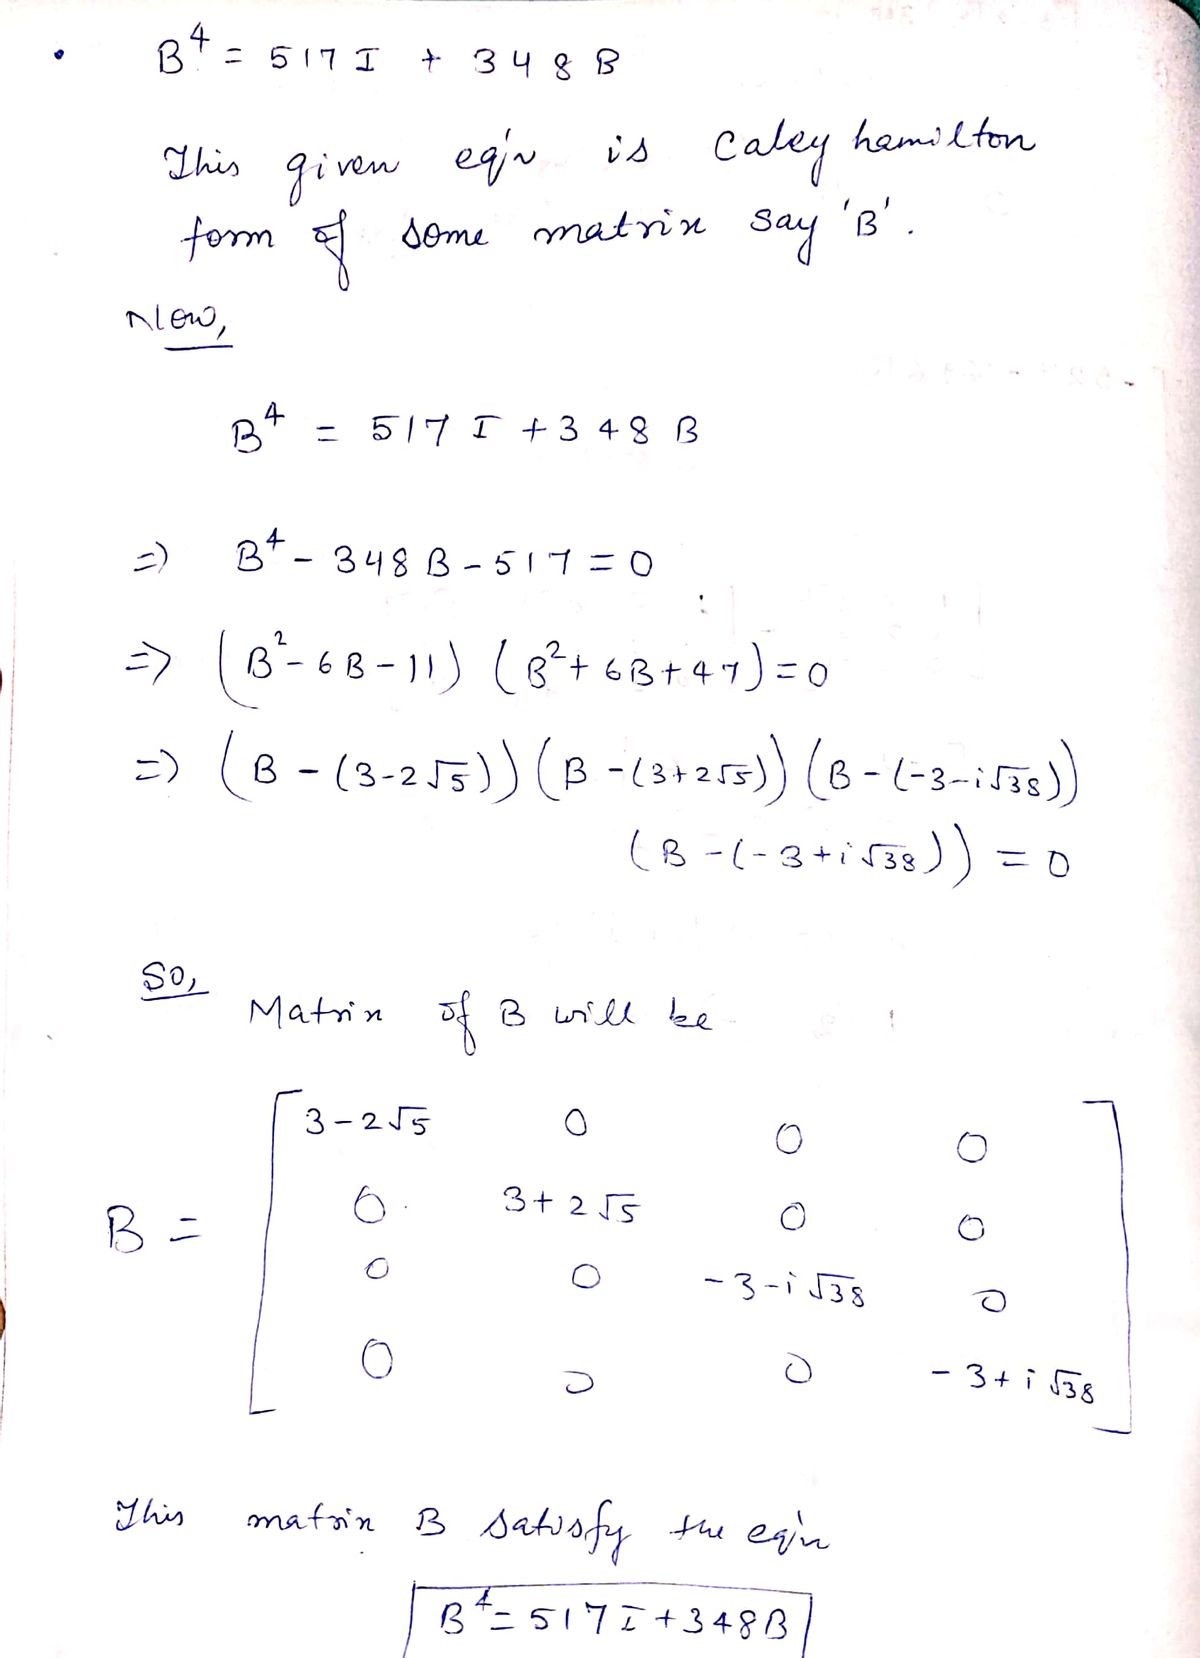 • B⁴ = 517 I + 348 B
This given eq'n is Caley hamilton
form of some matrix say 'B'.
Now,
B⁴ = 517 I + 348 B
=> B⁴ - 348 B - 517 = 0
=> (B² - 6B - 11) (B² + 6B + 47) = 0
=> (B - (3-2√5)) (B - (3+2√5)) (B - (-3-i√38))
(B - (-3+i√38)) = 0
So,
Matrix of B will be
3-2√5 0 0 0
B = 0 3+2√5 0 0
0 0 -3-i√38 0
0 0 0 -3+i√38
This matrix B satisfy the eq'n
B⁴ = 517 I + 348B